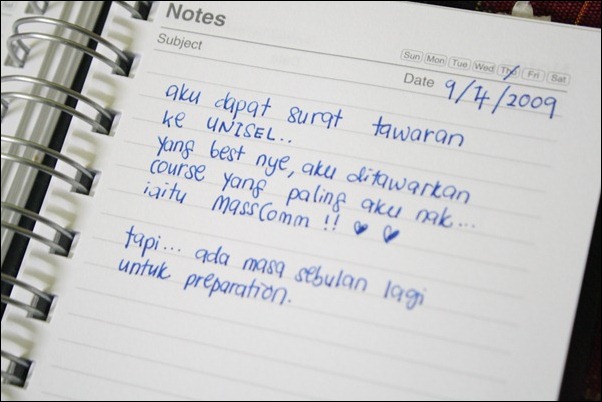 Notes
Subject
Sun Mon Tue Wed Thu Fri Sat
Date 9/4/2009
aku dapat surat tawaran
ke UNISEL..
yang best nye, aku ditawarkan
course yang paling aku nak...
iaitu MASSCOMM !! ♥ ♥
tapi... ada masa sebulan lagi
untuk preparation.